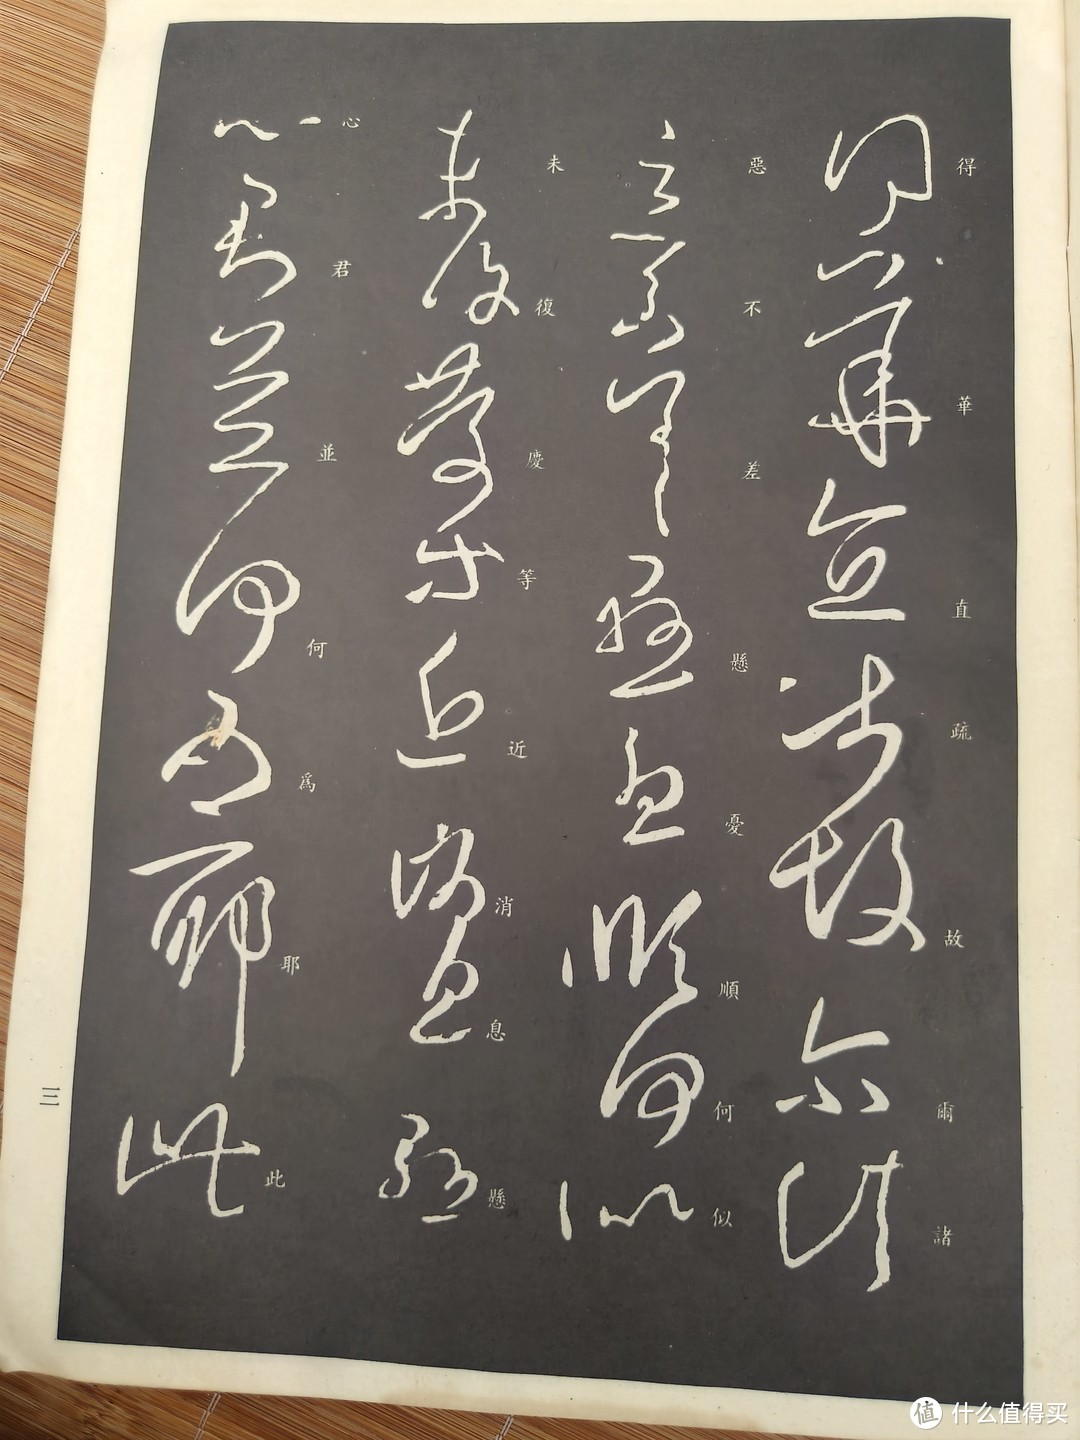 得華直疏故爾諸
惡不差懸憂順何似
未復慶等近消息懸
心君並何為耶此
三
值 什么值得买